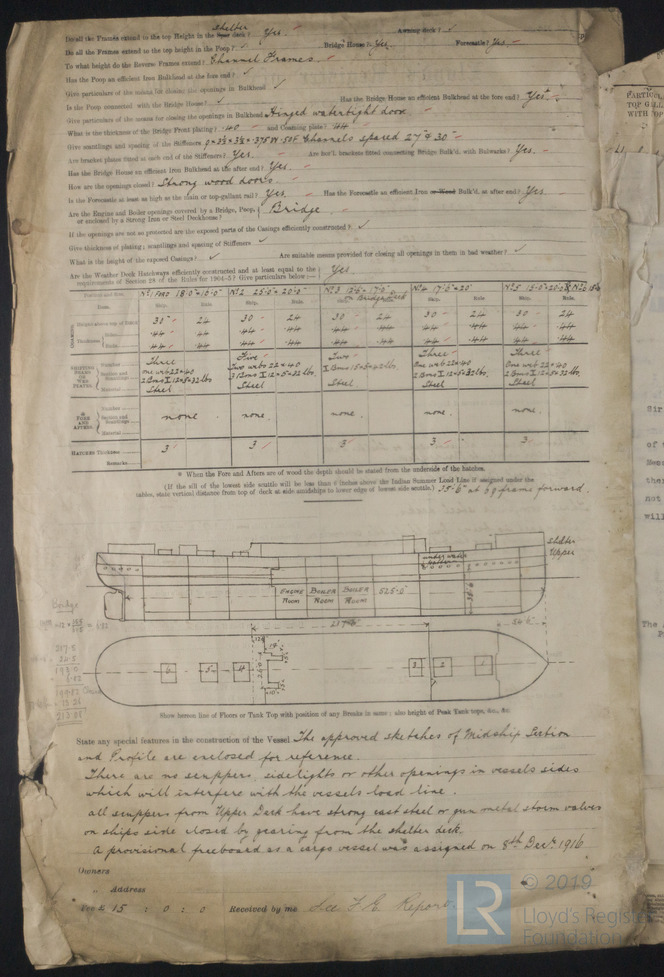 shelter
Do all the Frames extend to the top Height in the deck? Yes. Awning deck? ✓
Do all the Frames extend to the top height in the Poop? ✓ Bridge House? Yes. Forecastle? Yes
To what height do the Reverse Frames extend? Channel Frames
Has the Poop an efficient Iron Bulkhead at the fore end? ✓
Give particulars of the means for closing the openings in Bulkhead ✓
Is the Poop connected with the Bridge House? ✓ Has the Bridge House an efficient Bulkhead at the fore end? Yes.
Give particulars of the means for closing the openings in Bulkhead Hinged watertight door
What is the thickness of the Bridge Front plating? .40 and Coaming plate? .44
Give scantlings and spacing of the Stiffeners Channels spaced 27" & 30"
Are bracket plates fitted at each end of the Stiffeners? Yes. Are fitted connecting Bridge Bulk'd. with Bulwarks? Yes.
Has the Bridge House an efficient Iron Bulkhead at the after end? Yes.
How are the openings closed? Strong wood doors
Is the Forecastle at least as high as the main or top-gallant rail? Yes. Has the Forecastle an efficient Iron or Wood Bulk'd. at after end? Yes.
Are the Engine and Boiler openings covered by a Bridge, Poop, Bridge
or enclosed by a Strong Iron or Steel Deckhouse?
If the openings are not so protected are the exposed parts of the Casings efficiently constructed? ✓
Give thickness of plating; scantlings and spacing of Stiffeners ✓
What is the height of the exposed Casings? ✓ Are suitable means provided for closing all openings in them in bad weather? ✓
Are the Weather Deck Hatchways efficiently constructed and at least equal to the requirements of Section 29 of the Rules for 1904-5? Give particulars below:— Yes
No 2 25'-0" × 20'-0" No 4 17'-6" × 20'
on Bridge Deck
Item. Ship. Rule. Ship. Rule. Ship. Rule. Ship. Rule. Ship. Rule.
Height above top of Deck 30" 24 30 24 30 24 30 24 30 24
Thickness Sides .44 .44 .44 .44 .44 .44 .44 .44 .44 .44
Ends .44 .44 .44 .44 .44 .44 .44 .44 .44 .44
SHIFTING BEAMS OR WEB PLATES. Number Three Five Two Three Three
Section and Scantlings One web 22×.40 Two webs 22×.40 One web 22×.40 One web 22×.40
Material Steel Steel Steel Steel Steel
* FORE AND AFTERS. Number Section and Scantlings Material none. none. none. none. none.
HATCHES Thickness 3" 3" 3" 3" 3"
Remarks
* When the Fore and Afters are of wood the depth should be stated from the underside of the hatches.
(If the sill of the lowest side scuttle will be less than 6 inches above the Indian Summer Load Line if assigned under the
tables, state vertical distance from top of deck at side amidships to lower edge of lowest side scuttle.) 35'-6" at 69 frame forward.
shelter
Upper
ENGINE ROOM BOILER ROOM BOILER ROOM 525.0'
Bridge
217.5
6 5 4 3 2 1
Show hereon line of Floors or Tank Top with position of any Breaks in same; also height of Peak Tank tops, &c., &c.
State any special features in the construction of the Vessel. The approved sketches of Midship Section
and Profile are enclosed for reference.
There are no scuppers, sidelights or other openings in vessels sides
which will interfere with the vessels load line.
All scuppers from Upper Deck have strong cast steel or gun metal storm valves
on ships side closed by gearing from the shelter deck.
A provisional freeboard as a cargo vessel was assigned on 8th Decr. 1916
Owners
" Address
Fee £ 15 : 0 : 0 Received by me See F.E. Report.
PARTICU
TOP GALL
WITH TOP
Sir
of
Mess
the
not
will
The
LR
© 2019
Lloyd's Register
Foundation